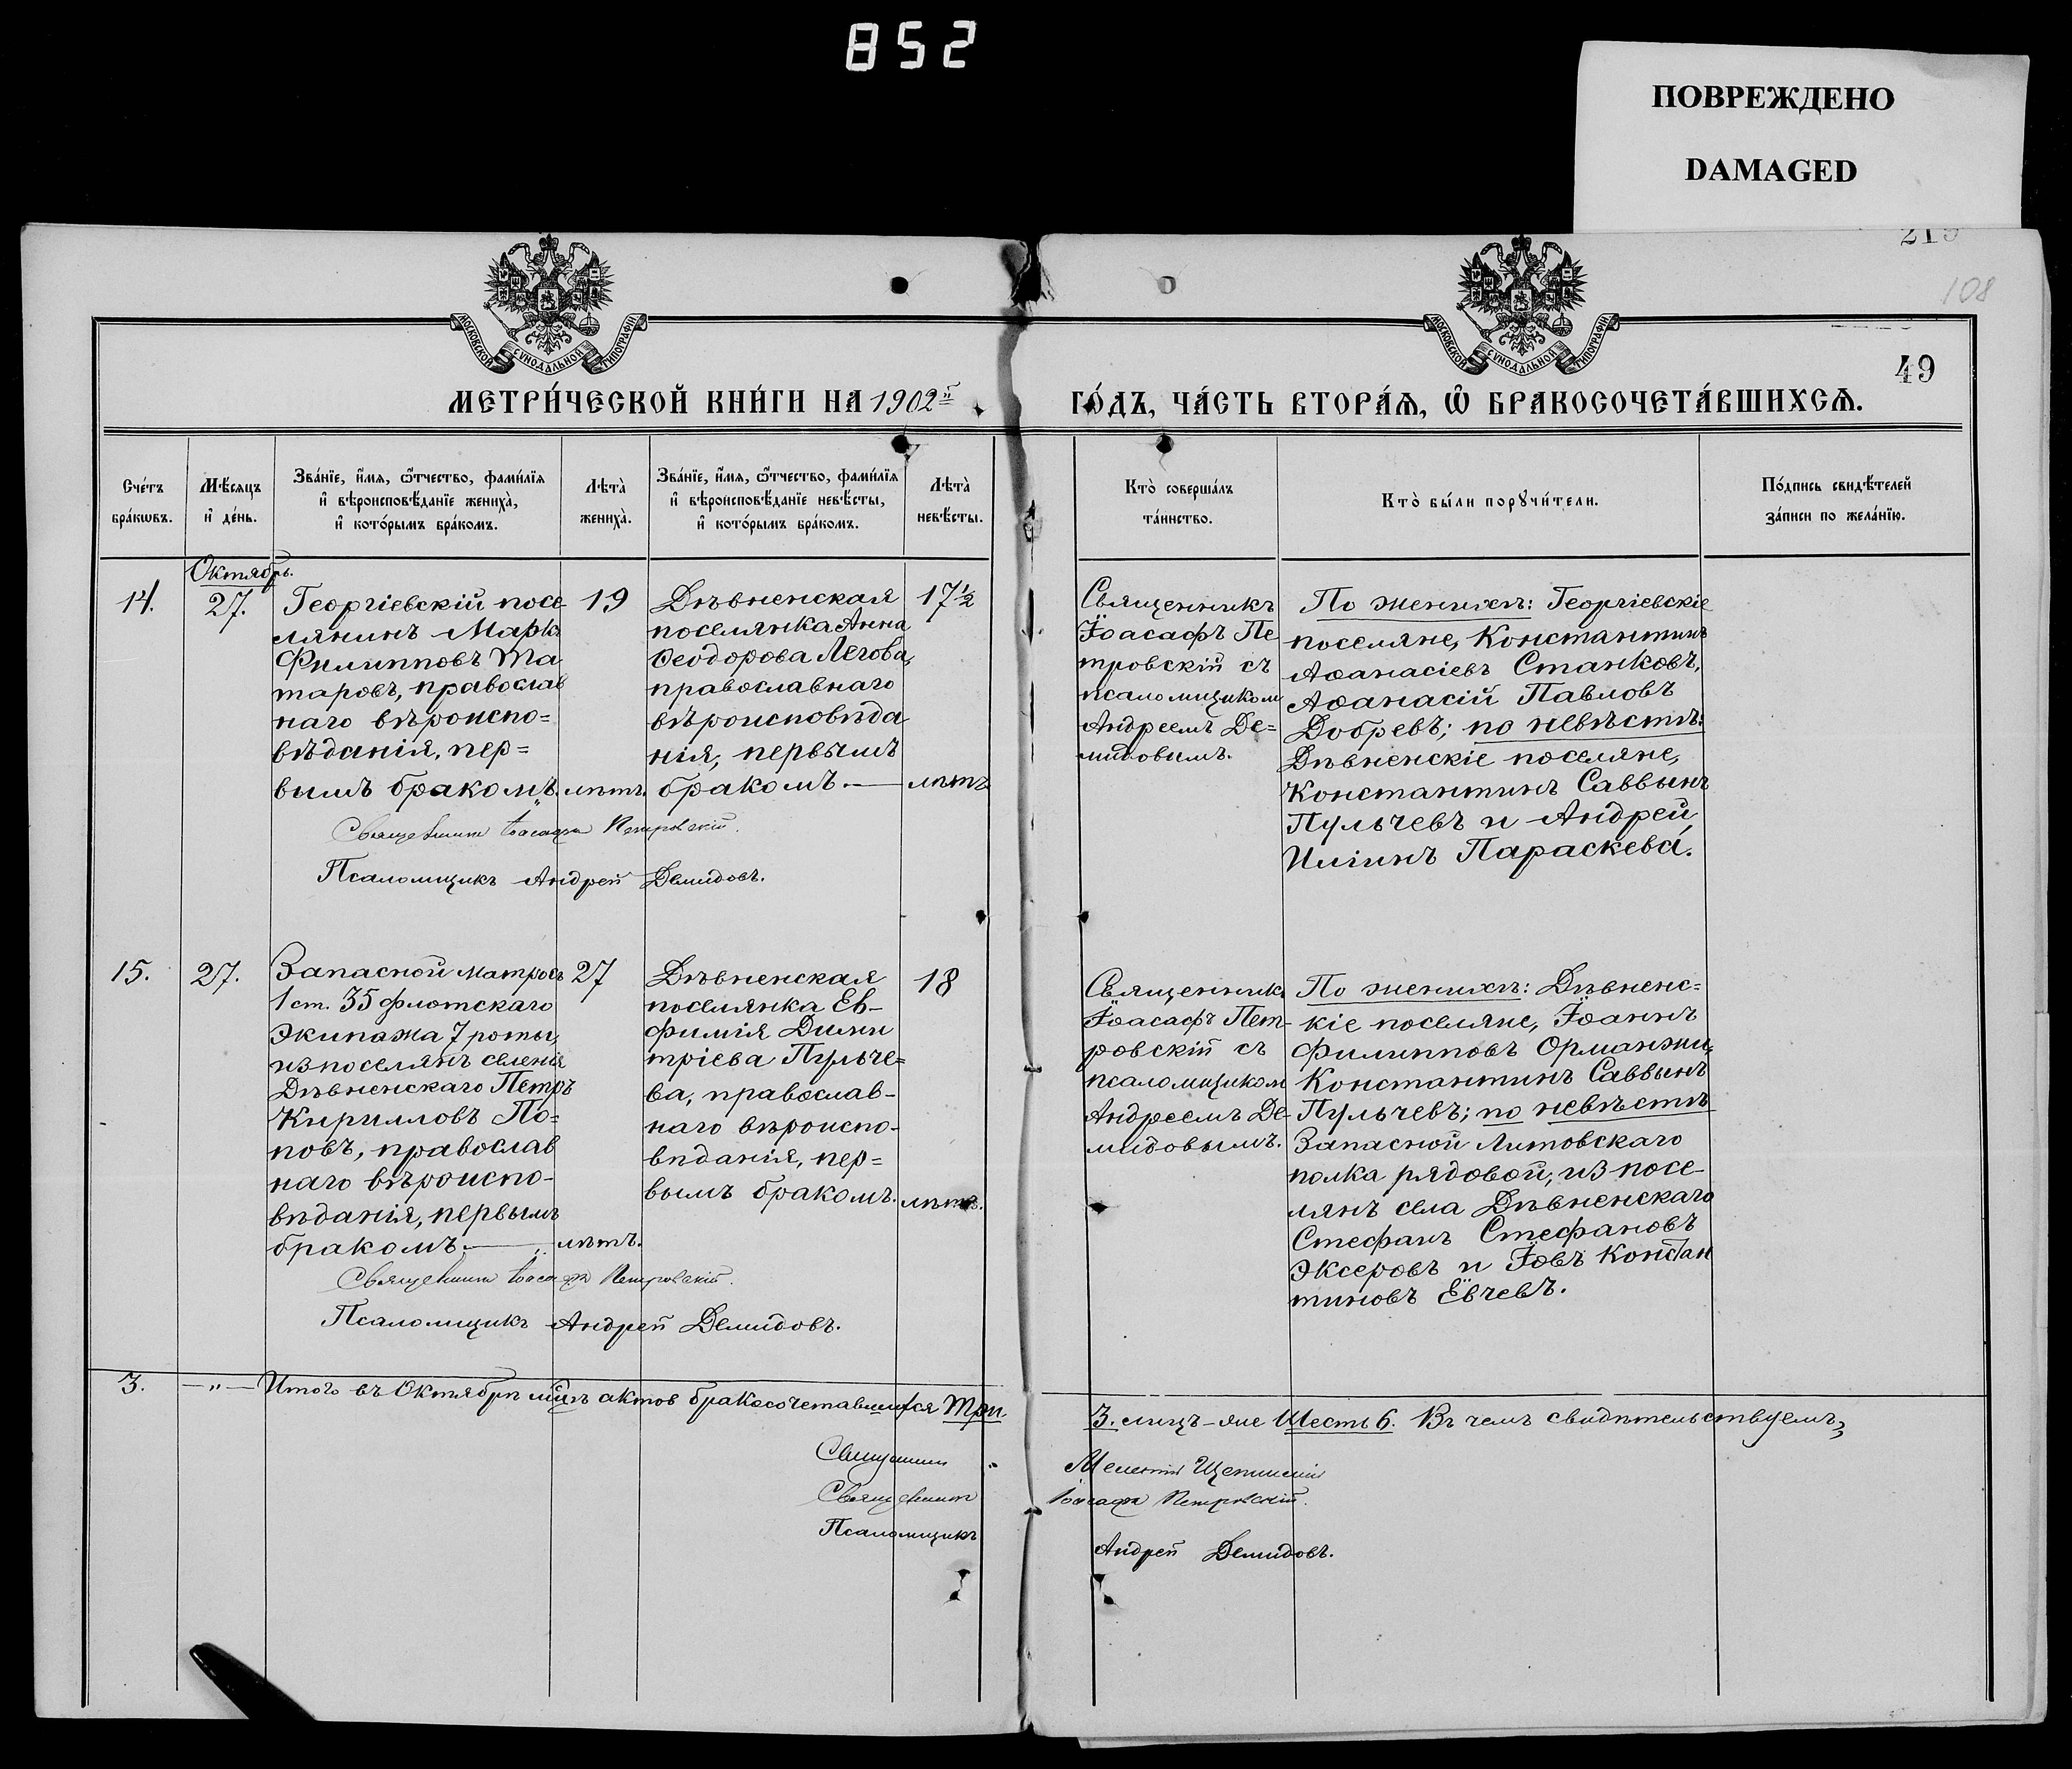 852
ПОВРЕЖДЕНО
DAMAGED
219
108
49
МОСКОВСКОЙ СѴНОДАЛЬНОЙ ТИПОГРАФІИ
МОСКОВСКОЙ СѴНОДАЛЬНОЙ ТИПОГРАФІИ
МЕТРИ́ЧЕСКОЙ КНИ́ГИ НА 1902й
ГО́ДЪ, ЧА́СТЬ ВТОРА́Ѧ, Ѡ҆ БРАКОСОЧЕТА́ВШИХСѦ.
Сче́тъ
бра́кωвъ.
Мѣ́сяцъ
и҆ де́нь.
Зва́нїе, и҆́мя, ѻ҆́тчество, фами́лїя
и҆ вѣроисповѣ́данїе жениха̀,
и҆ кото́рымъ бра́комъ.
Лѣта̀
жениха̀.
Зва́нїе, и҆́мя, ѻ҆́тчество, фами́лїя
и҆ вѣроисповѣ́данїе невѣ́сты,
и҆ кото́рымъ бра́комъ.
Лѣта̀
невѣ́сты.
Кто̀ соверша́лъ
та́инство.
Кто̀ бы́ли порꙋчи́тели.
По́дпись свидѣ́телей
за́писи по жела́нїю.
14.
Октябрь.
27.
Георгіевскій посе
лянинъ Маркъ
Филипповъ Та
таровъ, православ
наго вѣроиспо=
вѣданія, пер=
вымъ бракомъ.
19
лѣтъ.
Дѣвненская
поселянка Анна
Ѳеодорова Легова,
православнаго
вѣроисповѣда
нія, первымъ
бракомъ.—
17½
лѣтъ.
Священникъ
Іоасафъ Пе
тровскій съ
псаломщикомъ
Андреемъ Де=
мидовымъ.
По женихѣ: Георгіевскіе
поселяне, Константинъ
Аѳанасіевъ Станковъ,
Аѳанасій Павловъ
Добревъ; по невѣстѣ:
Дѣвненскіе поселяне,
Константинъ Саввинъ
Пульчевъ и Андрей
Иліинъ Параскева.
Священникъ Іоасафъ Петровскій.
Псаломщикъ Андрей Демидовъ.
15.
27.
Запасной матросъ
1 ст. 35 флотскаго
экипажа 7 роты,
изъ поселянъ селенія
Дѣвненскаго Петръ
Кирилловъ По=
повъ, православ
наго вѣроиспо-
вѣданія, первымъ
бракомъ.—
27
лѣтъ.
Дѣвненская
поселянка Ев-
фимія Дими
тріева Пульче=
ва, православ-
наго вѣроиспо-
вѣданія, пер=
вымъ бракомъ.
18
лѣтъ.
Священникъ
Іоасафъ Пет-
ровскій съ
псаломщикомъ
Андреемъ Де-
мидовымъ.
По женихѣ: Дѣвненс=
кіе поселяне, Іоаннъ
Филипповъ Орманжи,
Константинъ Саввинъ
Пульчевъ; по невѣстѣ
Запасной Литовскаго
полка рядовой, изъ посе-
лянъ села Дѣвненскаго
Стефанъ Стефановъ
Эксеровъ и Іовъ Констан
тиновъ Евчевъ.
Священникъ Іоасафъ Петровскій.
Псаломщикъ Андрей Демидовъ.
3. —"— Итого въ Октябрѣ м̃цѣ актов бракосочетавшихся Три
3. лицъ-же Шесть 6. Въ чемъ свидѣтельствуемъ,
Священникъ
Священникъ Іоасафъ Петровскій.
Псаломщикъ Андрей Демидовъ.